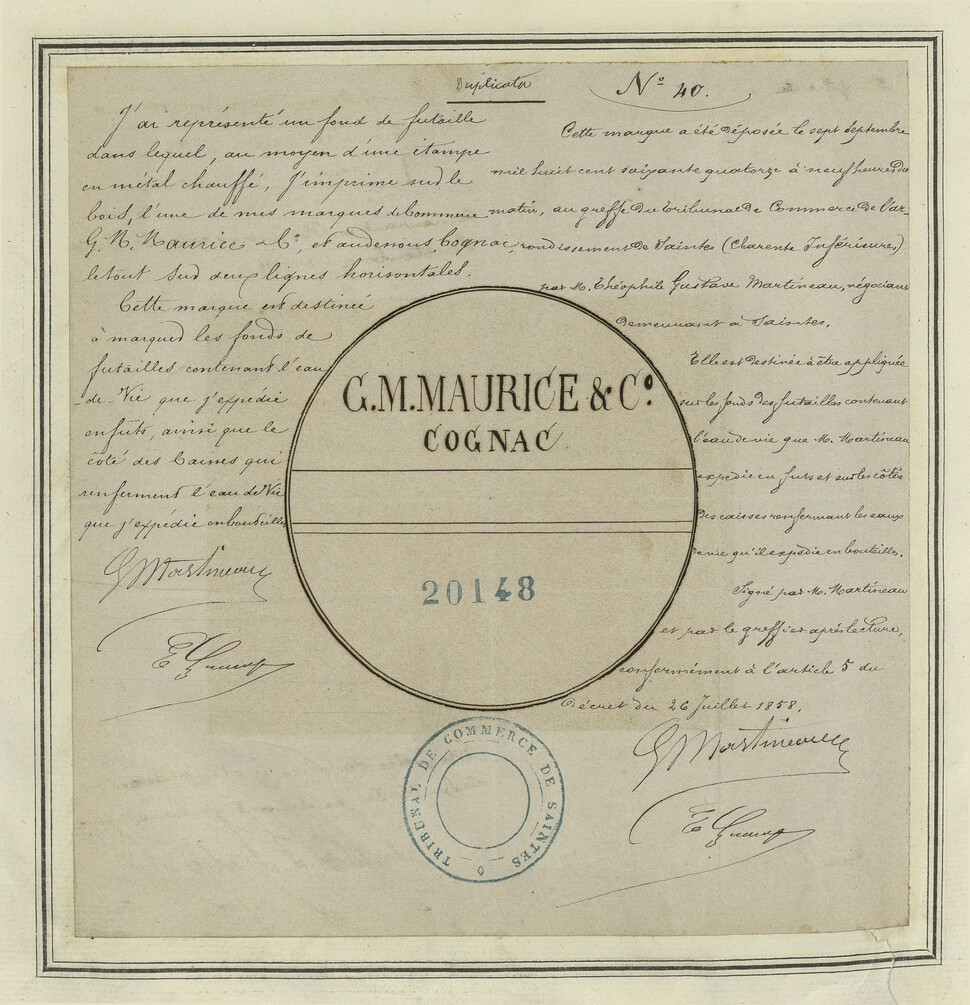 Duplicata
N° 40.
J'ai représenté un fond de futaille
dans lequel, au moyen d'une étampe
en métal chauffé, J'imprime sur le
bois, l'une de mes marques de Commerce
G. M. Maurice & C°, et au denous Cognac,
le tout sur deux lignes horisontales.
Cette marque est destinée
à marquer les fonds de
futailles contenant l'eau
-de-Vie que j'expédie
en futs, ainsi que le
côté des Caisses qui
renferment l'eau de Vie
que j'expédie en bouteilles
GMartineau
Cette marque a été déposée le sept Septembre
mil huit cent soixante quatorze à neuf heures du
matin, au greffe du tribunal de Commerce de l'ar-
rondissement de Saintes (Charente Inférieure)
par M. Théophile Gustave Martineau, négociant
demeurant à Saintes.
Elle est destinée à être appliquée
sur les fonds des futailles contenant
l'eau de vie que M. Martineau
expédie en futs et sur les côtés
des caisses renfermant les eaux
de vie qu'il expédie en bouteilles.
Signé par M. Martineau
et par le greffier après lecture,
conformément à l'article 5 du
Décret du 26 Juillet 1858.
GMartineau
G.M.MAURICE & C°.
COGNAC
20148
TRIBUNAL DE COMMERCE DE SAINTES